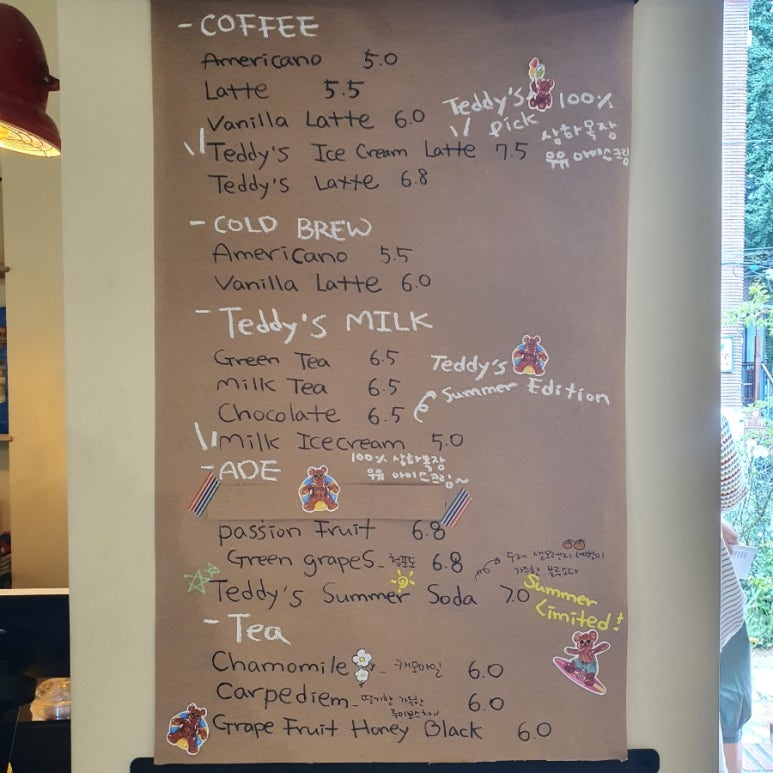 - COFFEE
Americano 5.0
Latte 5.5
Vanilla Latte 6.0
Teddy's Ice Cream Latte 7.5
Teddy's pick
100%
상하목장
유유 아이스크림
Teddy's Latte 6.8
- COLD BREW
Americano 5.5
Vanilla Latte 6.0
- Teddy's MILK
Green Tea 6.5
Milk Tea 6.5
Chocolate 6.5
Teddy's
Summer Edition
Milk Icecream 5.0
100% 상하목장
유유 아이스크림~
- ADE
passion Fruit 6.8
Green grapes - 청포도 6.8
Teddy's Summer Soda 7.0
수제 생오렌지
가득한
Summer
Limited!
- Tea
Chamomile - 캐모마일 6.0
Carpediem - 딸기향 가득한 6.0
Grape Fruit Honey Black 6.0